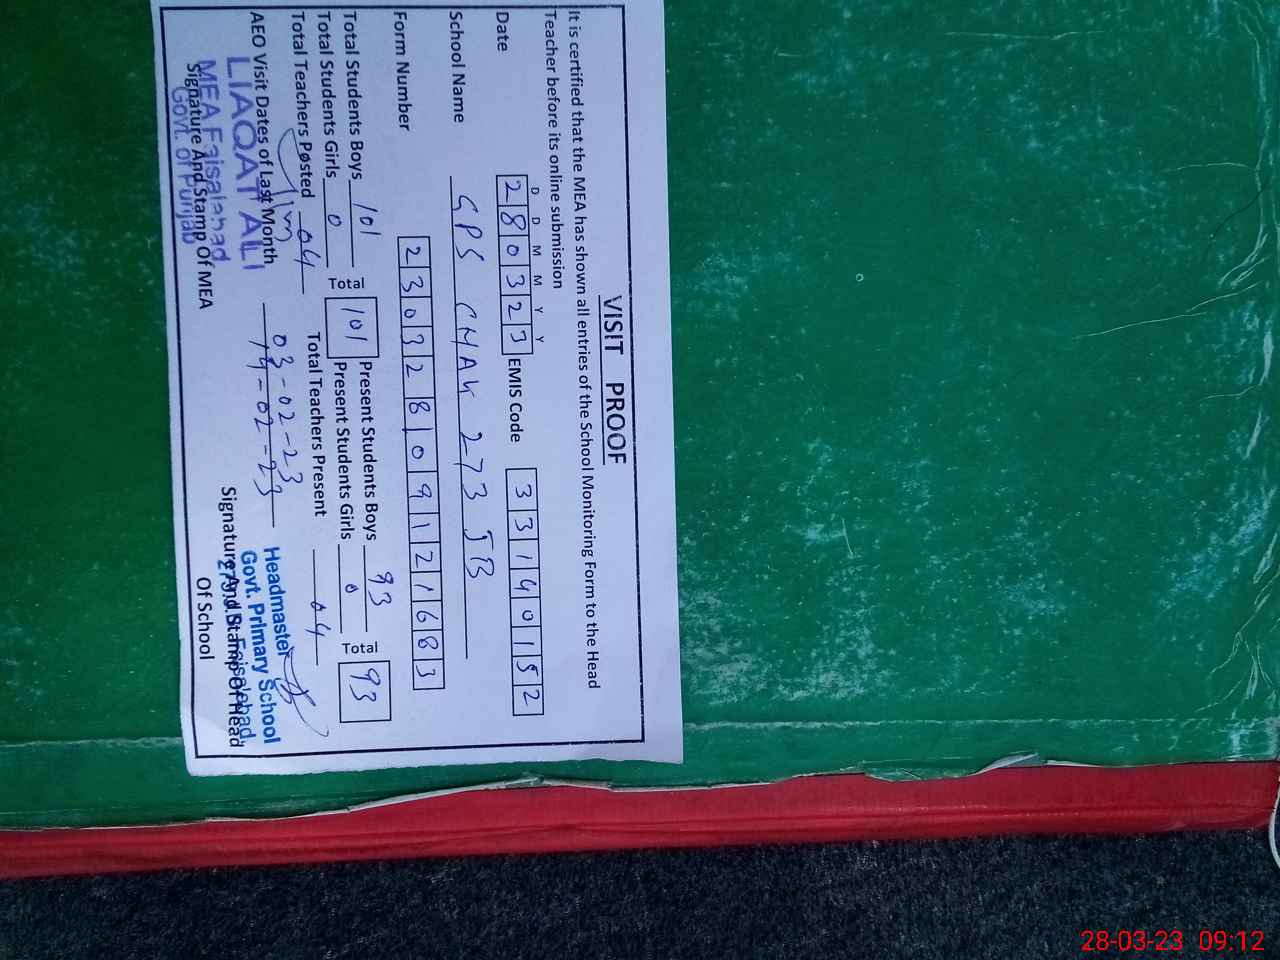 VISIT PROOF
It is certified that the MEA has shown all entries of the School Monitoring Form to the Head
Teacher before its online submission
D D M M Y Y
Date 280323 EMIS Code 33140152
School Name GPS CHAK 273 JB
Form Number 23032809121683
Total Students Boys 101 Total 101 Present Students Boys 93 Total 93
Total Students Girls 0 Present Students Girls 0
Total Teachers Posted 04 Total Teachers Present 04
AEO Visit Dates of Last Month 03-02-23
14-02-23
LIAQAT ALI
MEA Faisalabad
Govt. Of Punjab
Signature And Stamp Of MEA
Headmaster
Govt. Primary School
273 J.B. Faisalabad.
Signature And Stamp Of Head
Of School
28-03-23 09:12